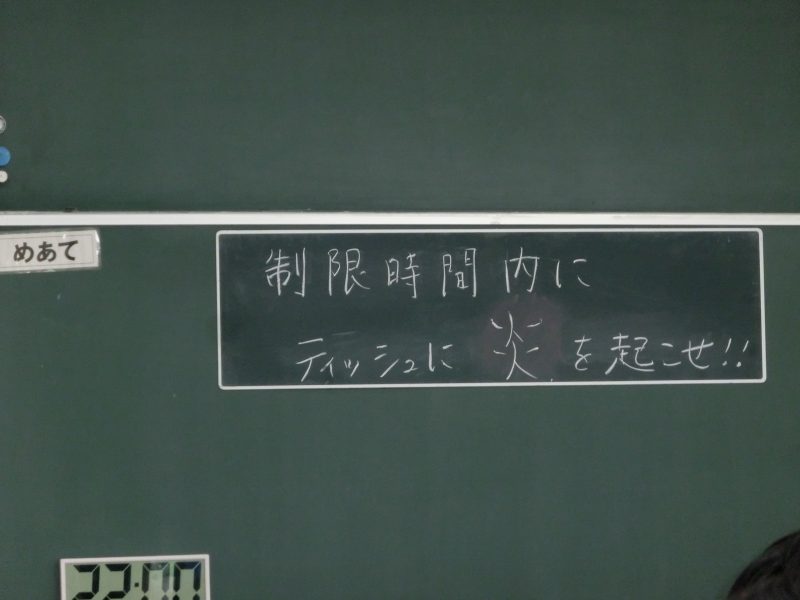 めあて
制限時間内に
ティッシュに炎を起こせ!!
22:00